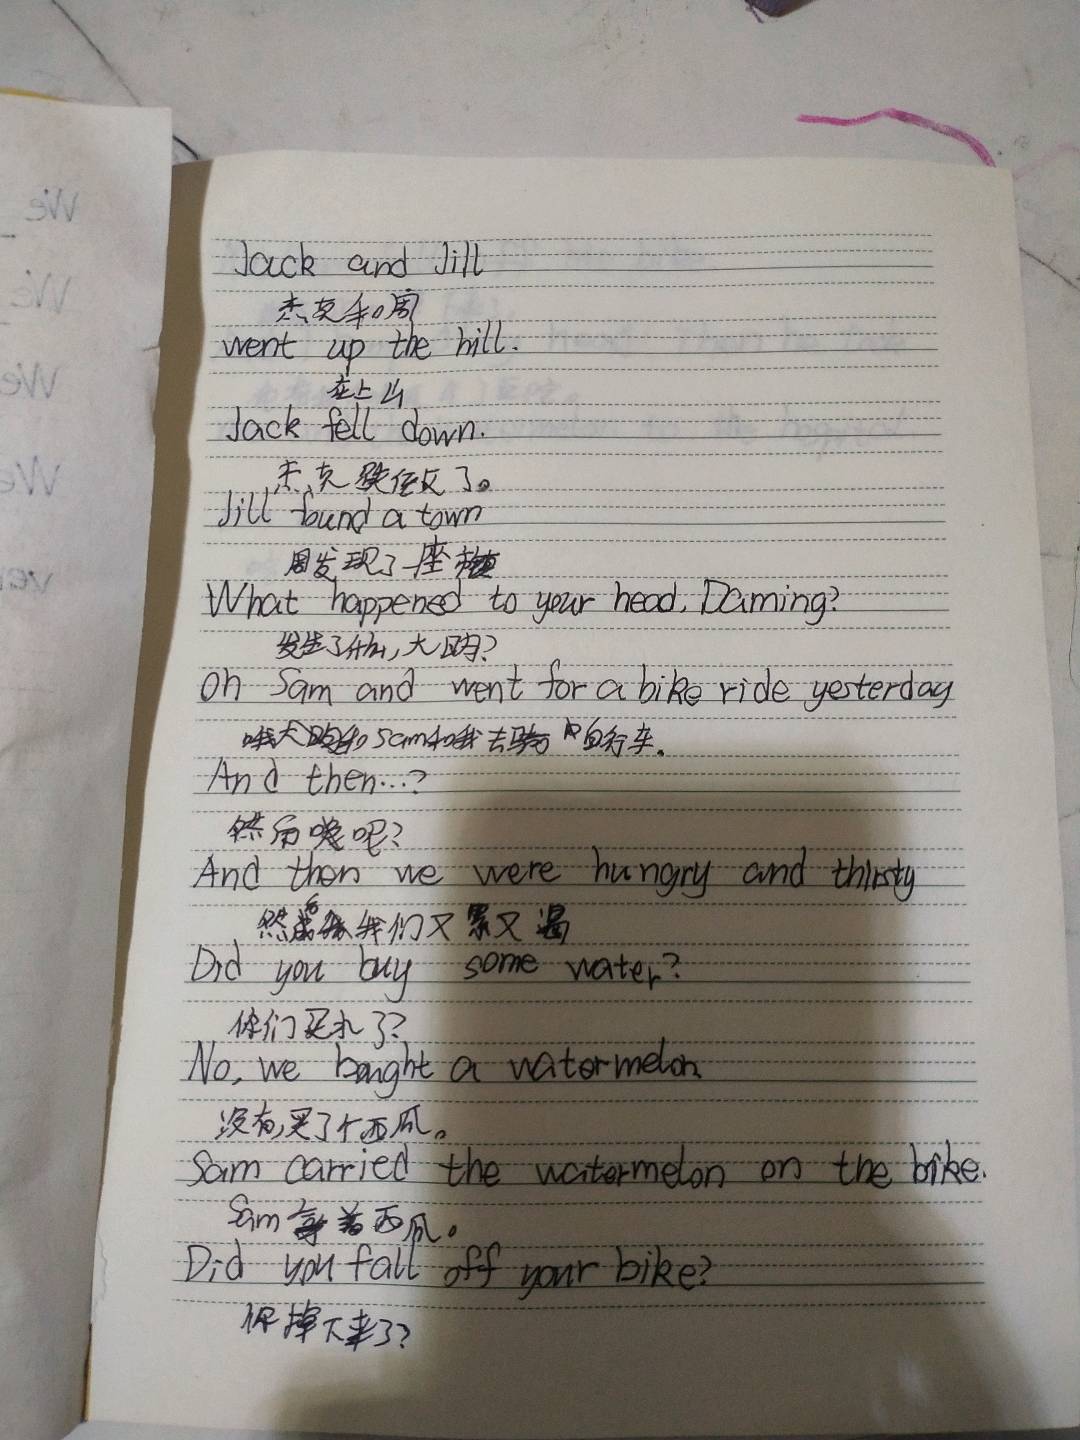 Jack and Jill
杰克和周
went up the hill.
在上山
Jack fell down.
杰克跌在又了。
Jill found a town
周发现了一座
What happened to your head, Daming?
发生了什么,大明?
Oh Sam and went for a bike ride yesterday
哦大明和Sam和我去骑自行车.
And then...?
然后喽呢?
And then we were hungry and thirsty
然后我们又累又渴
Did you buy some water?
你们买水了?
No, we bought a watermelon.
没有,买了个西瓜。
Sam carried the watermelon on the bike.
Sam 着西瓜。
Did you fall off your bike?
你掉下来了?
We
We
We
We